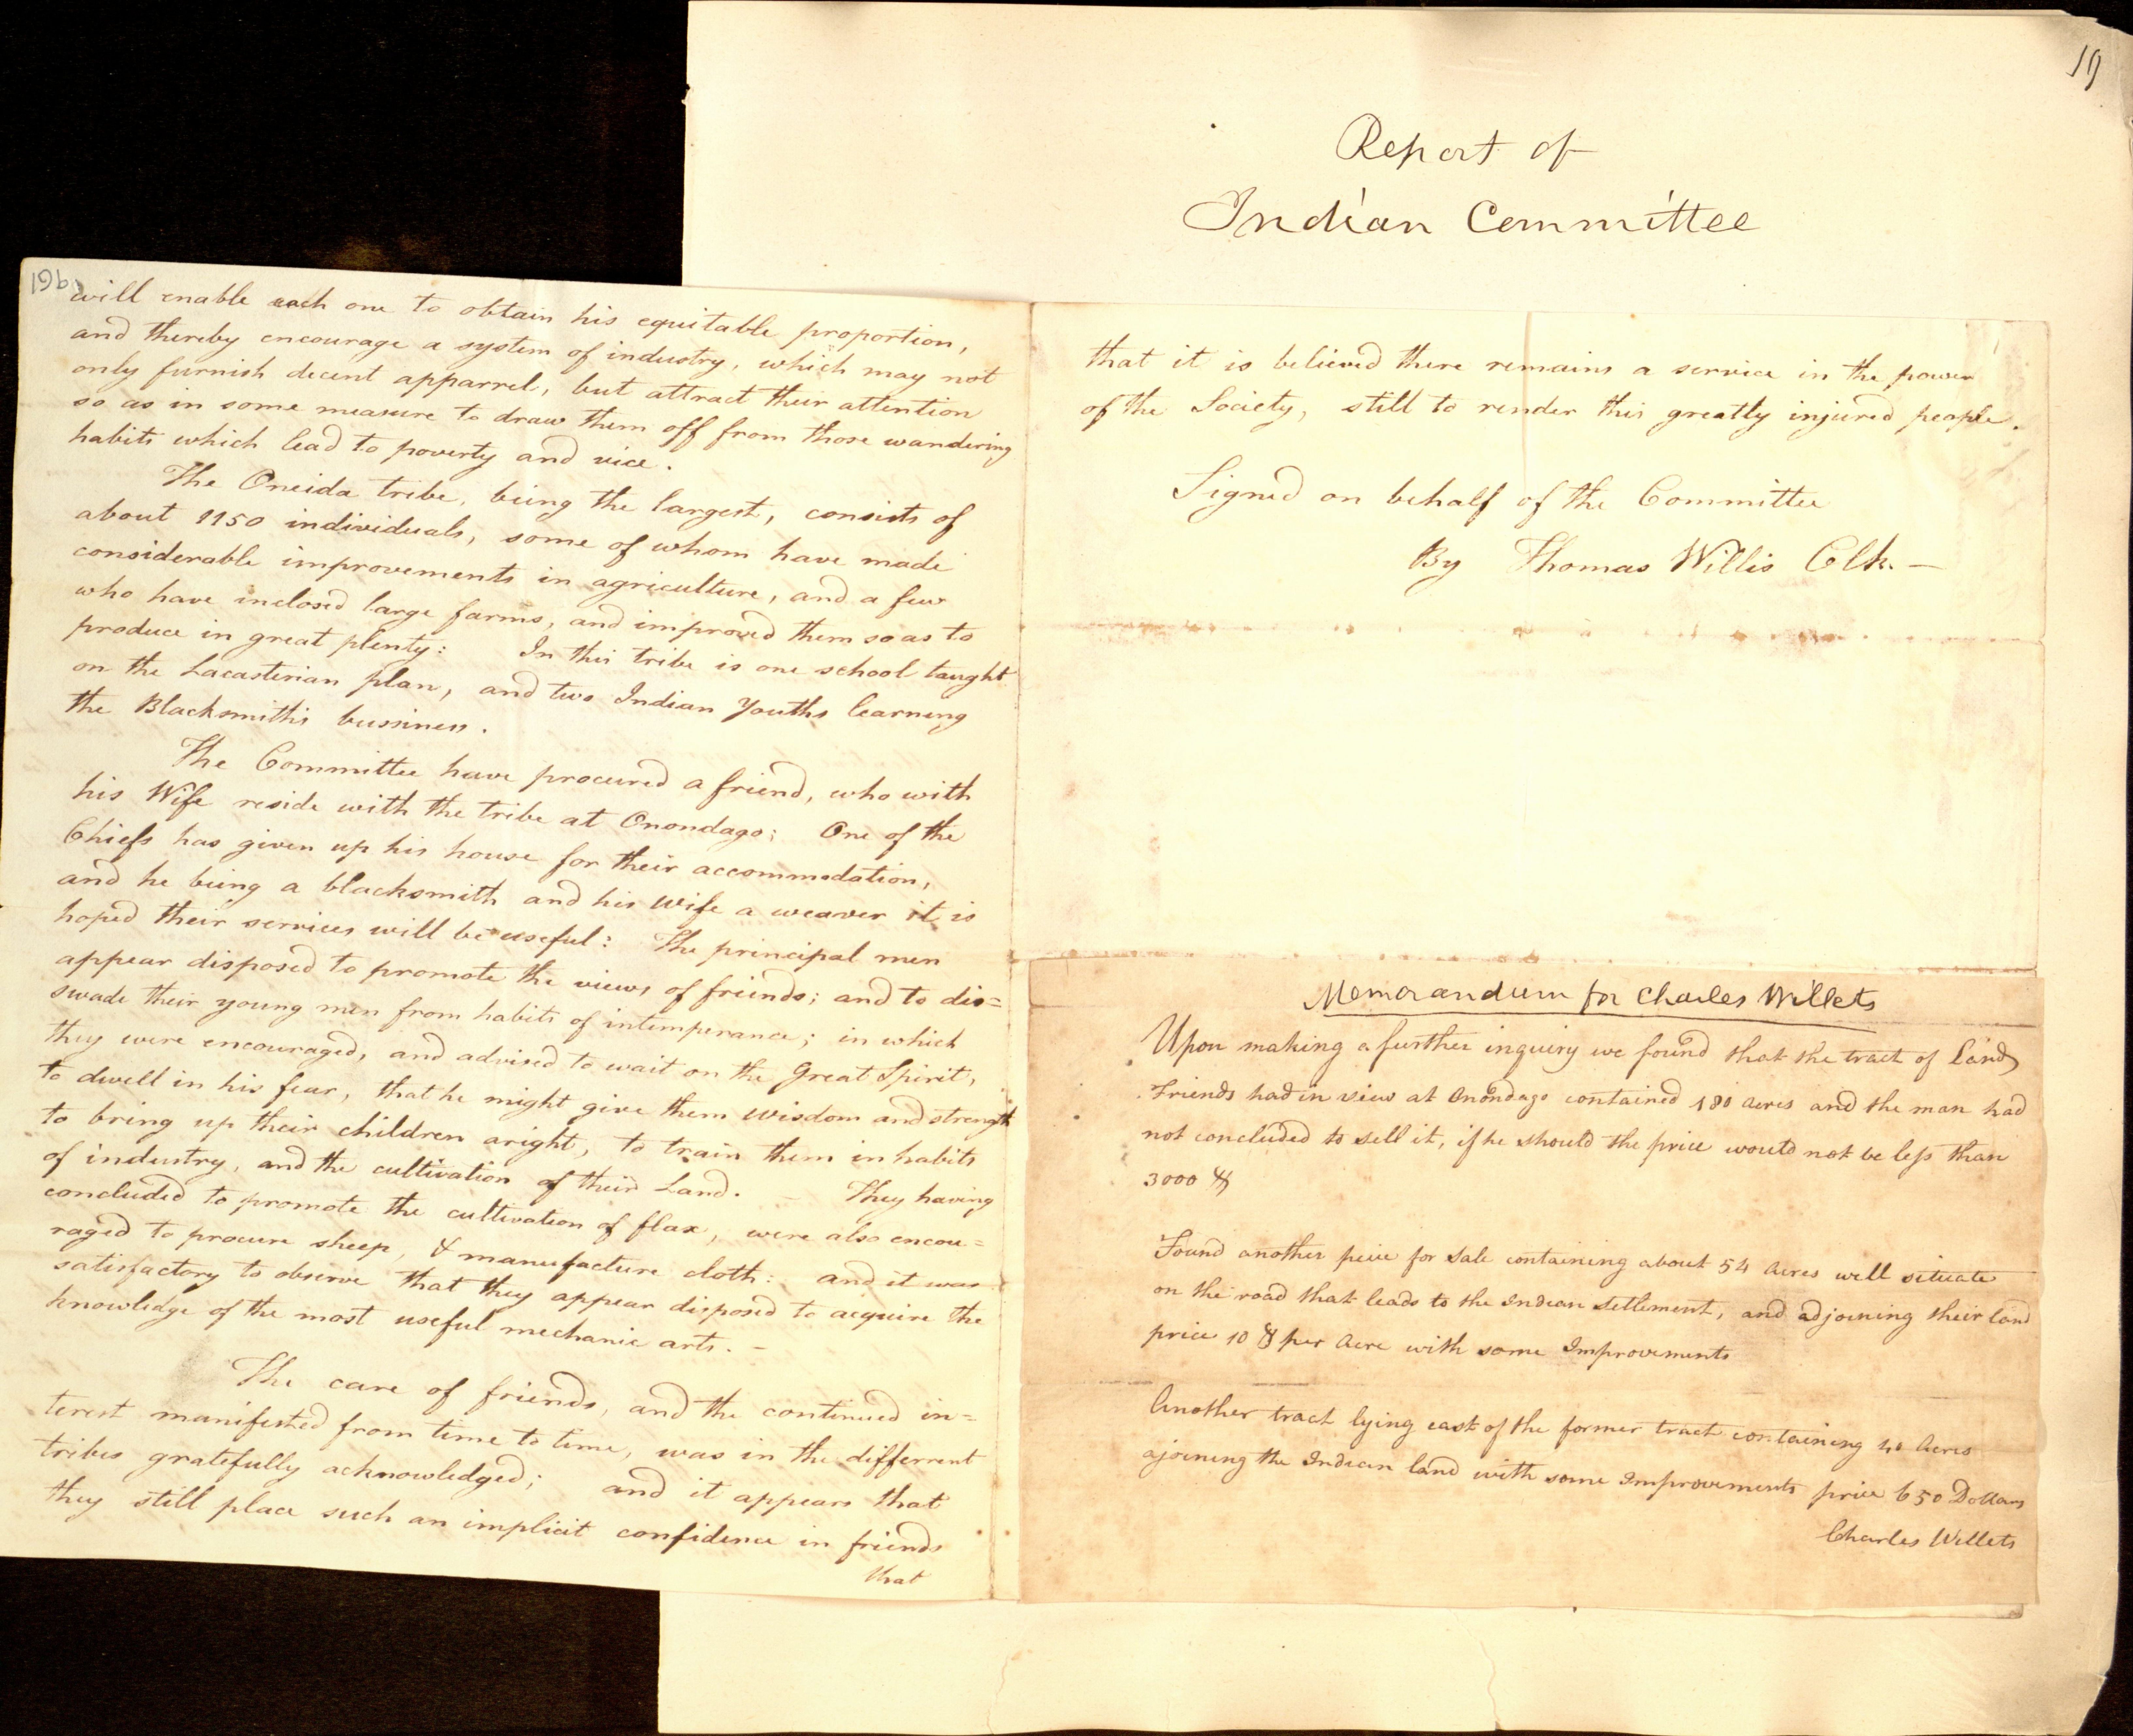 19
Report of
Indian Committee
19b
will enable each one to obtain his equitable proportion,
and thereby encourage a system of industry, which may not
only furnish decent apparrel, but attract their attention
so as in some measure to draw them off from those wandering
habits which lead to poverty and vice.
The Oneida tribe, being the largest, consists of
about 1150 individuals, some of whom have made
considerable improvements in agriculture, and a few
who have inclosed large farms, and improved them so as to
produce in great plenty: In this tribe is one school taught
on the Lacasterian plan, and two Indian Youths learning
the Blacksmith's bussiness.
The Committee have procured a friend, who with
his Wife reside with the tribe at Onondago; One of the
Chiefs has given up his house for their accommodation,
and he being a blacksmith and his wife a weaver it is
hoped their services will be useful: The principal men
appear disposed to promote the views of friends; and to dis=
swade their young men from habits of intemperance; in which
they were encouraged, and advised to wait on the Great Spirit,
to dwell in his fear, that he might give them wisdom and strength
to bring up their children aright, to train them in habits
of industry, and the cultivation of their Land. – They having
concluded to promote the cultivation of flax, were also encou=
raged to procure sheep, & manufacture cloth: and it was
satisfactory to observe that they appear disposed to acquire the
knowledge of the most useful mechanic arts. –
The care of friends, and the continued in=
terest manifested from time to time, was in the differrent
tribes gratefully acknowledged; and it appears that
they still place such an implicit confidence in friends
that
that it is believed there remains a service in the power
of the Society, still to render this greatly injured people.
Signed on behalf of the Committee
By Thomas Willis Clk. –
Memorandum for Charles Willets
Upon making a further inquiry we found that the tract of land
Friends had in view at Onondago contained 180 acres and the man had
not concluded to sell it, if he should the price would not be less than
3000 $
Found another peice for sale containing about 54 acres well situate
on the road that leads to the Indian settlement, and adjoining their land
price 10 $ per acre with some Improvements
Another tract lying east of the former tract containing 40 Acres
ajoining the Indian land with some Improvements price 650 Dollars
Charles Willets